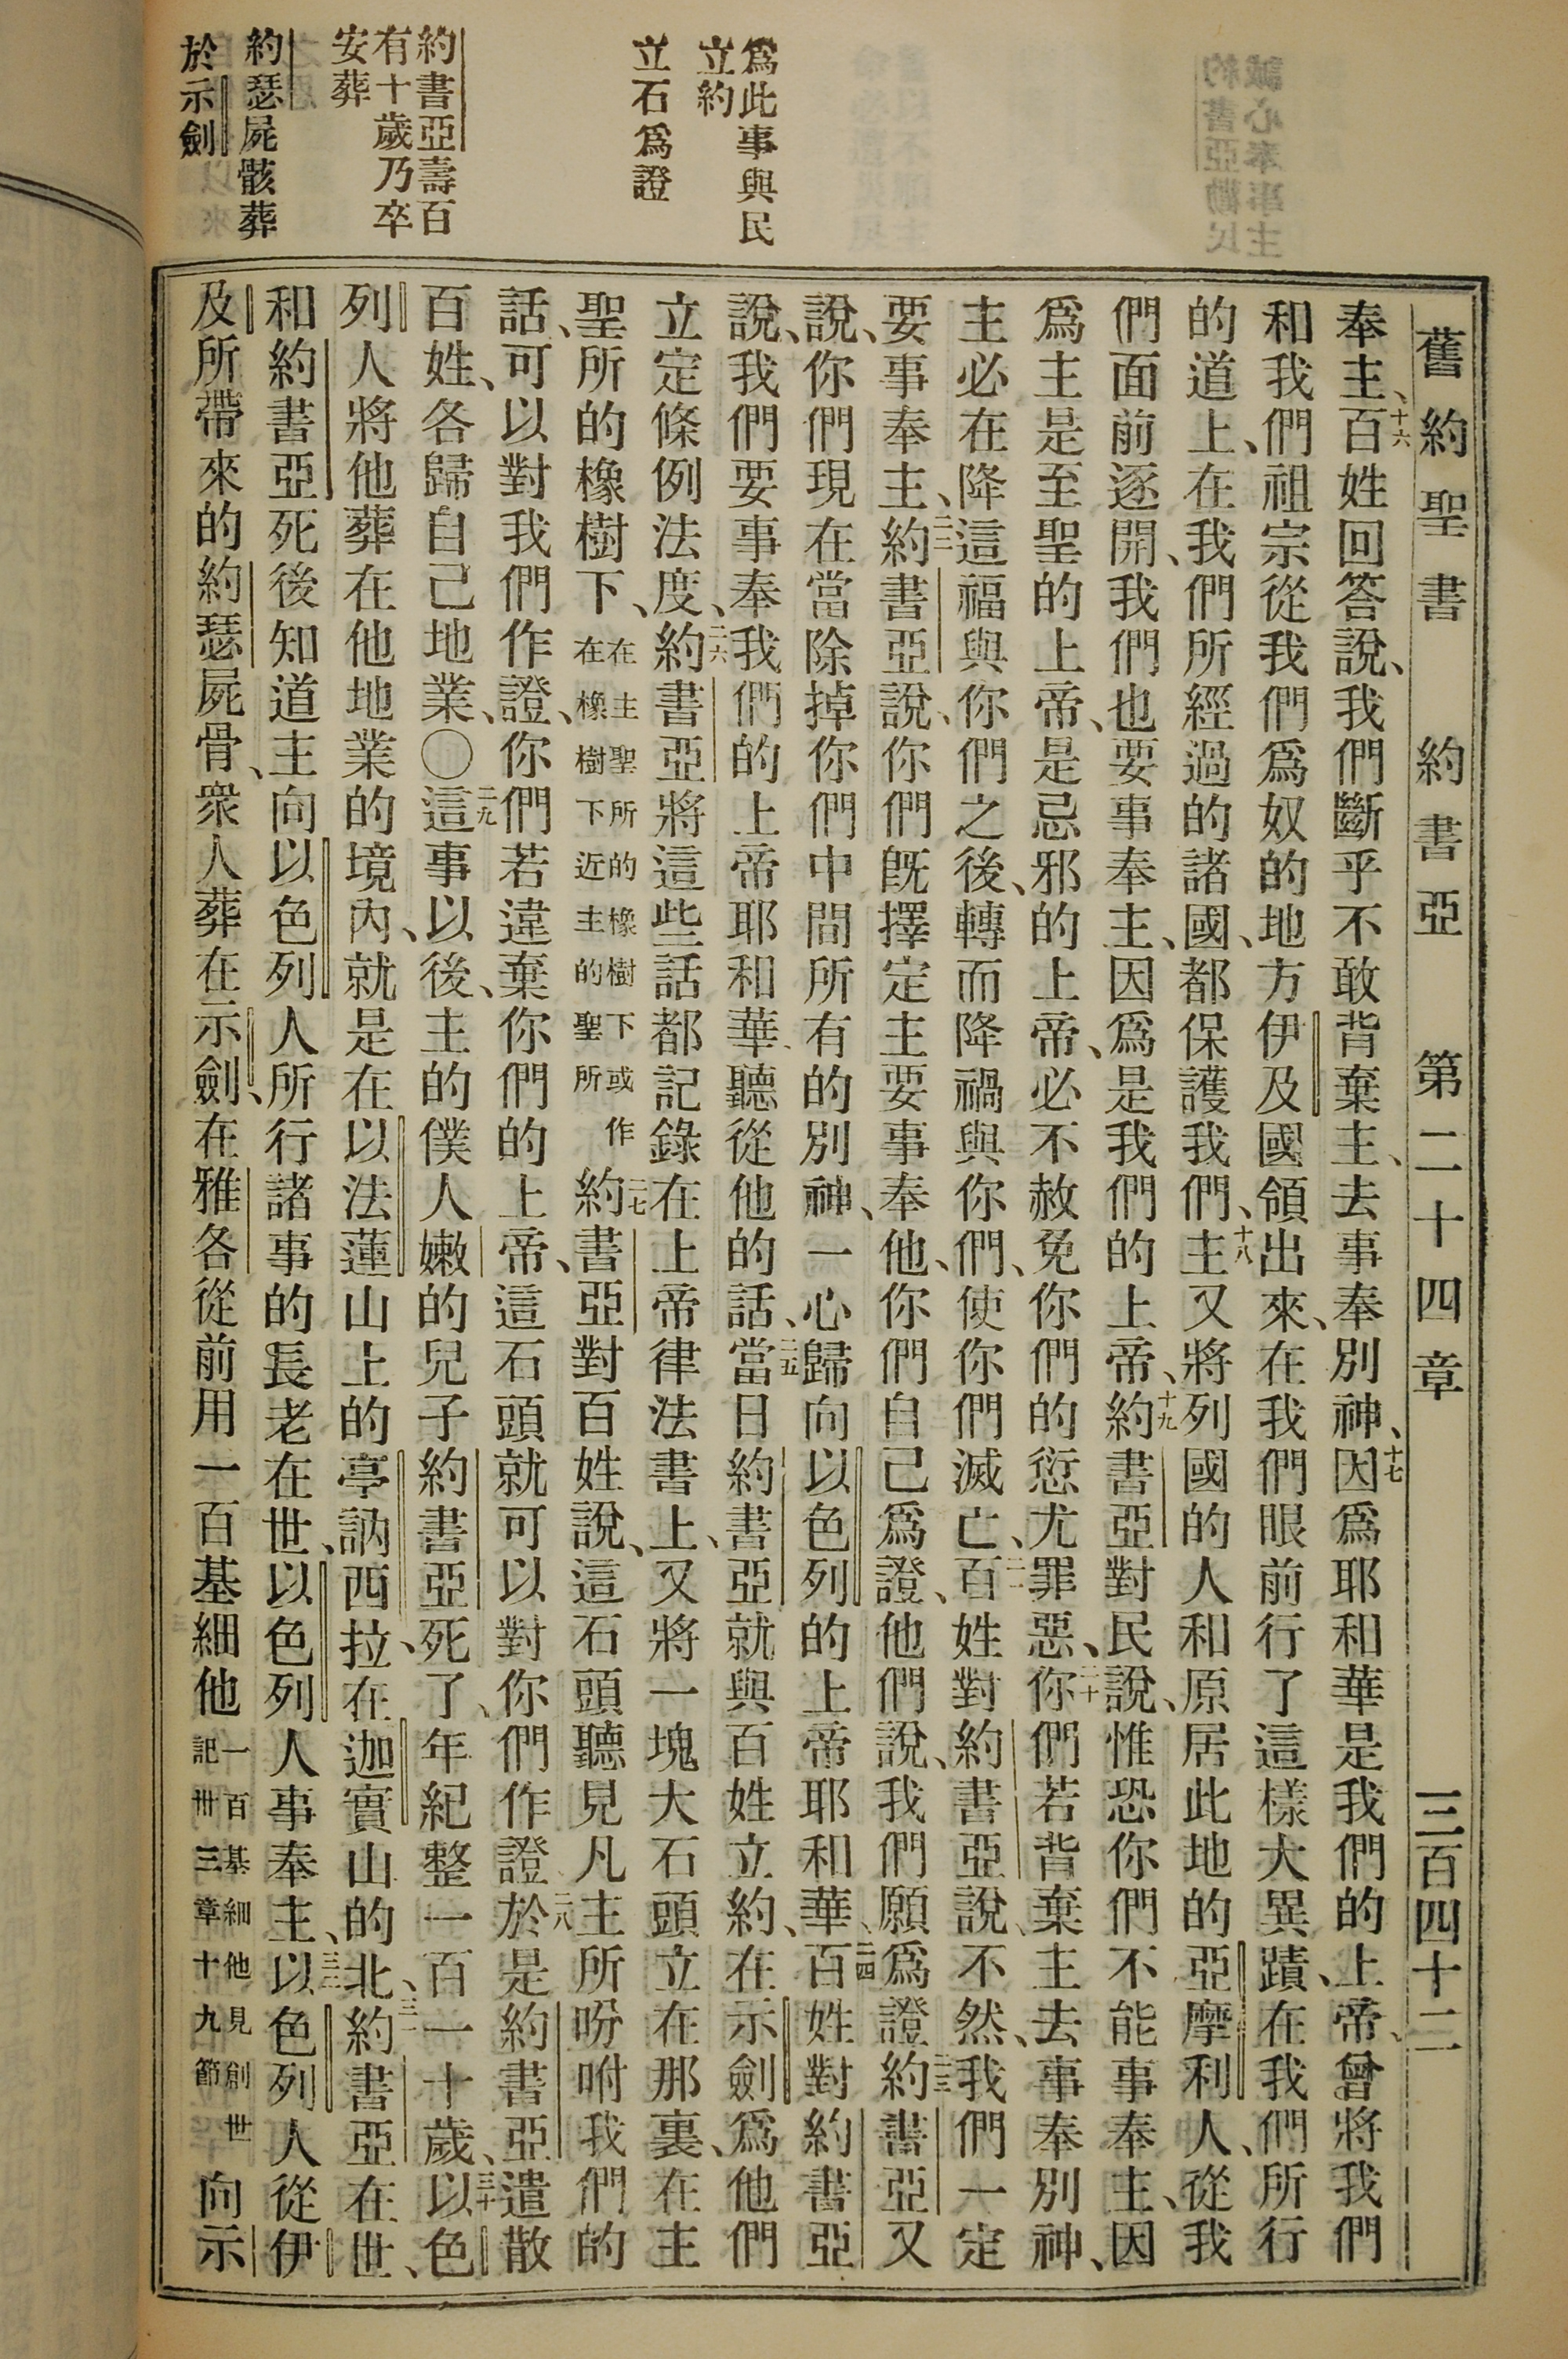 舊約聖書 約書亞 第二十四章 三百四十二
爲此事與民
立約
立石爲證
約書亞壽百
有十歲乃卒
安葬
約瑟屍骸葬
於示劍
奉主、十六百姓回答說、我們斷乎不敢背棄主、去事奉別神、十七因爲耶和華是我們的上帝、曾將我們
和我們祖宗從我們爲奴的地方伊及國領出來、在我們眼前行了這樣大異蹟、在我們所行
的道上、在我們所經過的諸國、都保護我們、十八主又將列國的人和原居此地的亞摩利人、從我
們面前逐開、我們也要事奉主、因爲是我們的上帝、十九約書亞對民說、惟恐你們不能事奉主、因
爲主是至聖的上帝、是忌邪的上帝、必不赦免你們的愆尤罪惡、二十你們若背棄主去事奉別神、
主必在降這福與你們之後、轉而降禍與你們、使你們滅亡、二一百姓對約書亞說、不然、我們一定
要事奉主、二二約書亞說、你們旣擇定主要事奉他、你們自己爲證、他們說、我們願爲證二三約書亞又
說、你們現在當除掉你們中間所有的別神、一心歸向以色列的上帝耶和華、二四百姓對約書亞
說、我們要事奉我們的上帝耶和華、聽從他的話、二五當日約書亞就與百姓立約、在示劍爲他們
立定條例法度、二六約書亞將這些話都記錄在上帝律法書上、又將一塊大石頭立在那裏、在主
聖所的橡樹下、在主聖所的橡樹下或作在橡樹下近主的聖所二七約書亞對百姓說、這石頭聽見凡主所吩咐我們的
話、可以對我們作證、你們若違棄你們的上帝、這石頭就可以對你們作證二八於是約書亞遣散
百姓、各歸自己地業、〇二九這事以後、主的僕人嫩的兒子約書亞死了、年紀整一百一十歲、三十以色
列人將他葬在他地業的境內、就是在以法蓮山上的亭訥西拉、在迦實山的北、三一約書亞在世、
和約書亞死後知道主向以色列人所行諸事的長老在世、以色列人事奉主、三二以色列人從伊
及所帶來的約瑟屍骨、衆人葬在示劍、在雅各從前用一百基細他一百基細他見創世記卅三章十九節向示